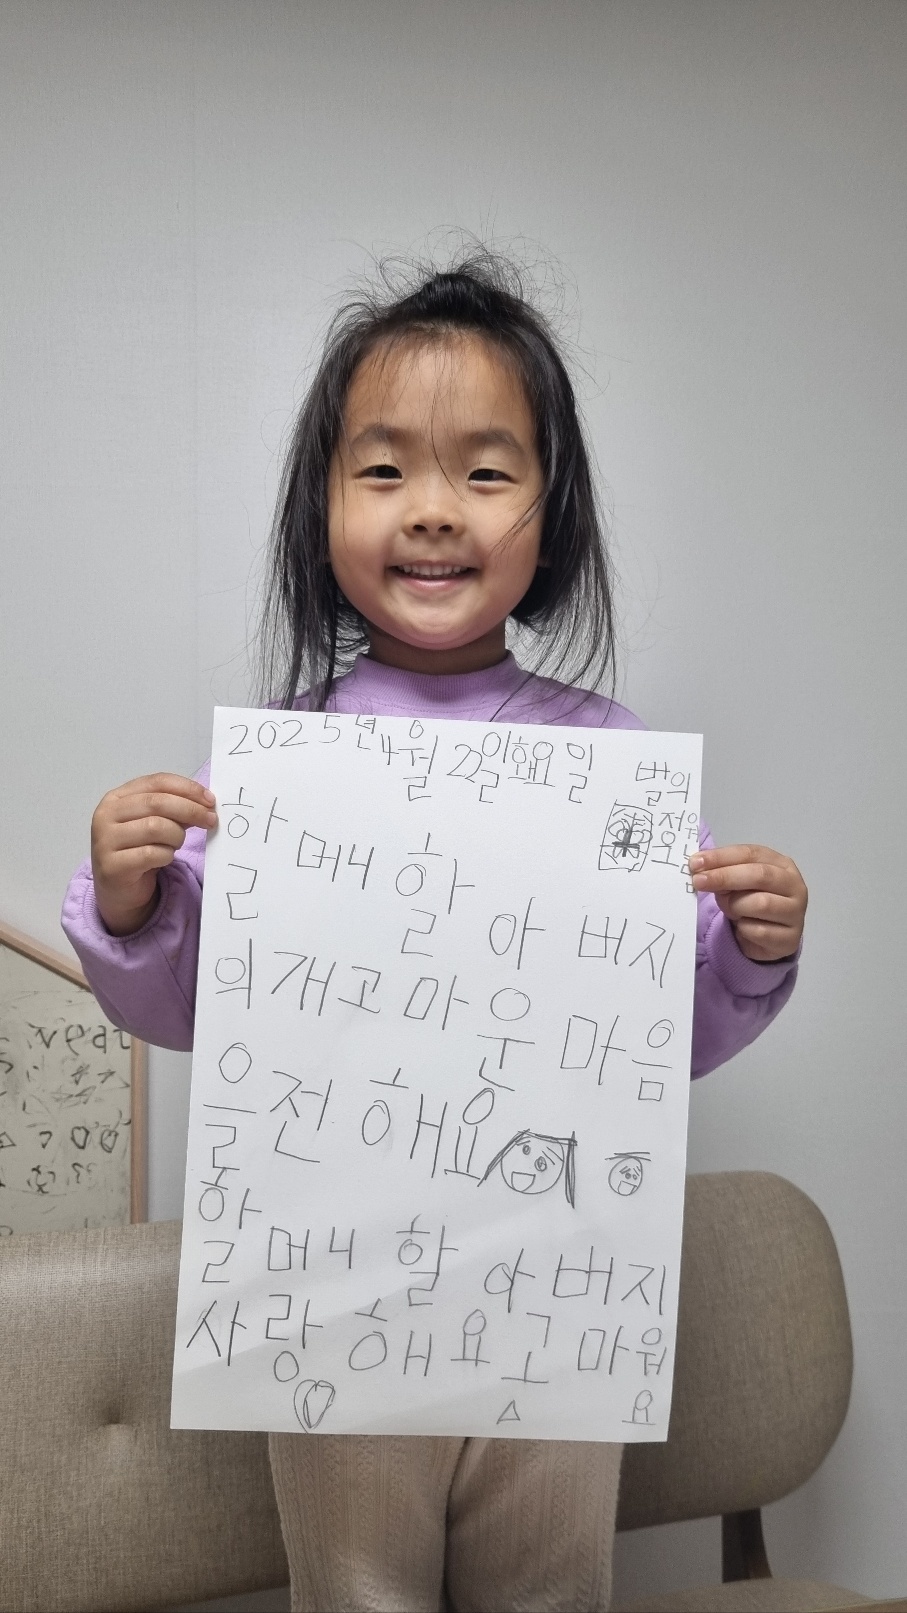 2025년 4월 22일 화요일
할머니 할아버지
의개고마운 마음
을전해요
할머니 할아버지
사랑해요 고마워
요